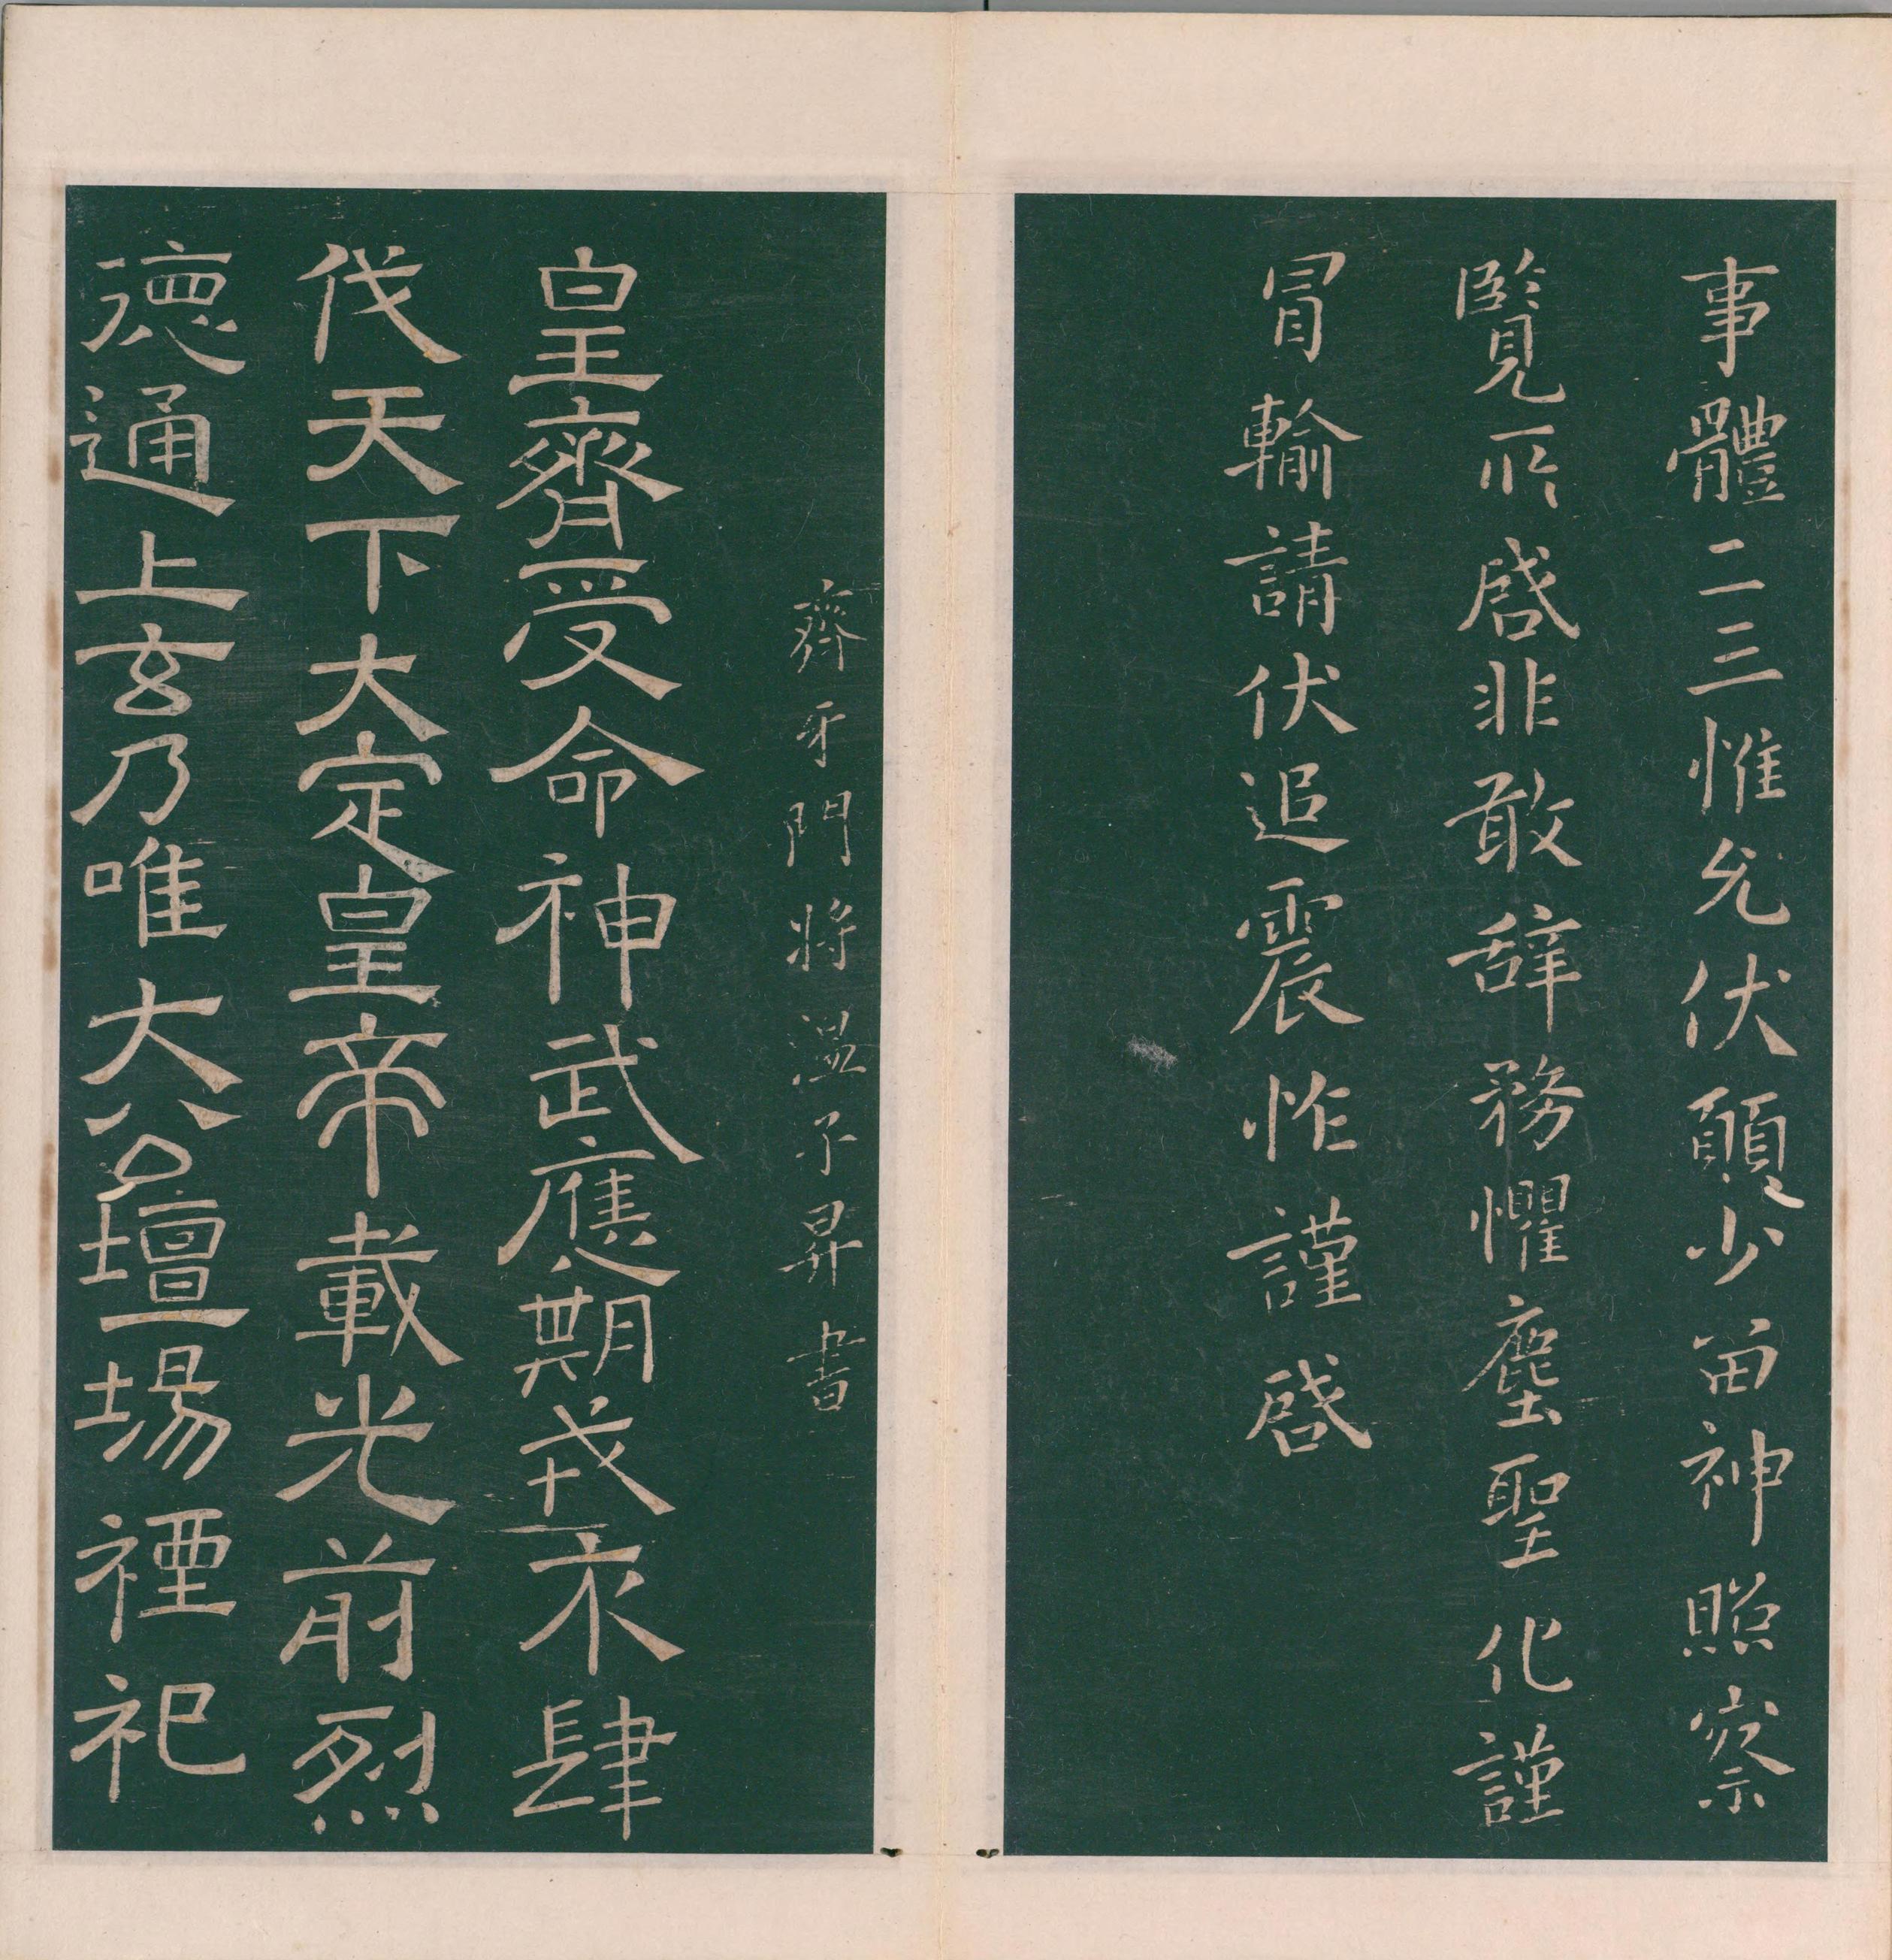 事體二三惟允伏願少留神照察
覽所啓非敢辞務懼塵聖化謹
冒輸請伏追震怍謹啓
齊牙門將温子昇書
皇齊受命神武應期戎衣肆
伐天下大定皇帝載光前烈
德通上玄乃唯大公壇場禋祀